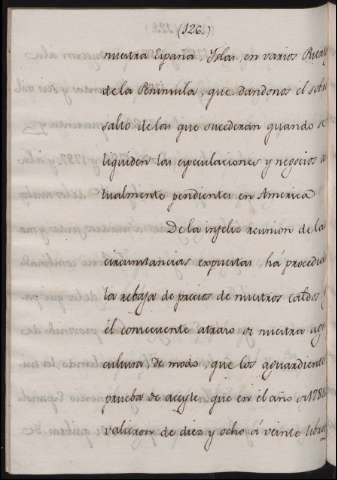 (126.)
nuestra España, Islas, en varios
de la Peninsula, que dandonos el sobre
salto de los que sucederán quando se
liquiden las especulaciones y negocios ac
tualmente pendientes en America
De la infeliz reunion de las
circunstancias expuestas há procedido
la rebaja de precios de nuestros caldos y
el consecuente atraso en nuestra agri
cultura, de modo, que los aguardientes
prueba de aceyte que en el año
valieron de diez y ocho á veinte libras